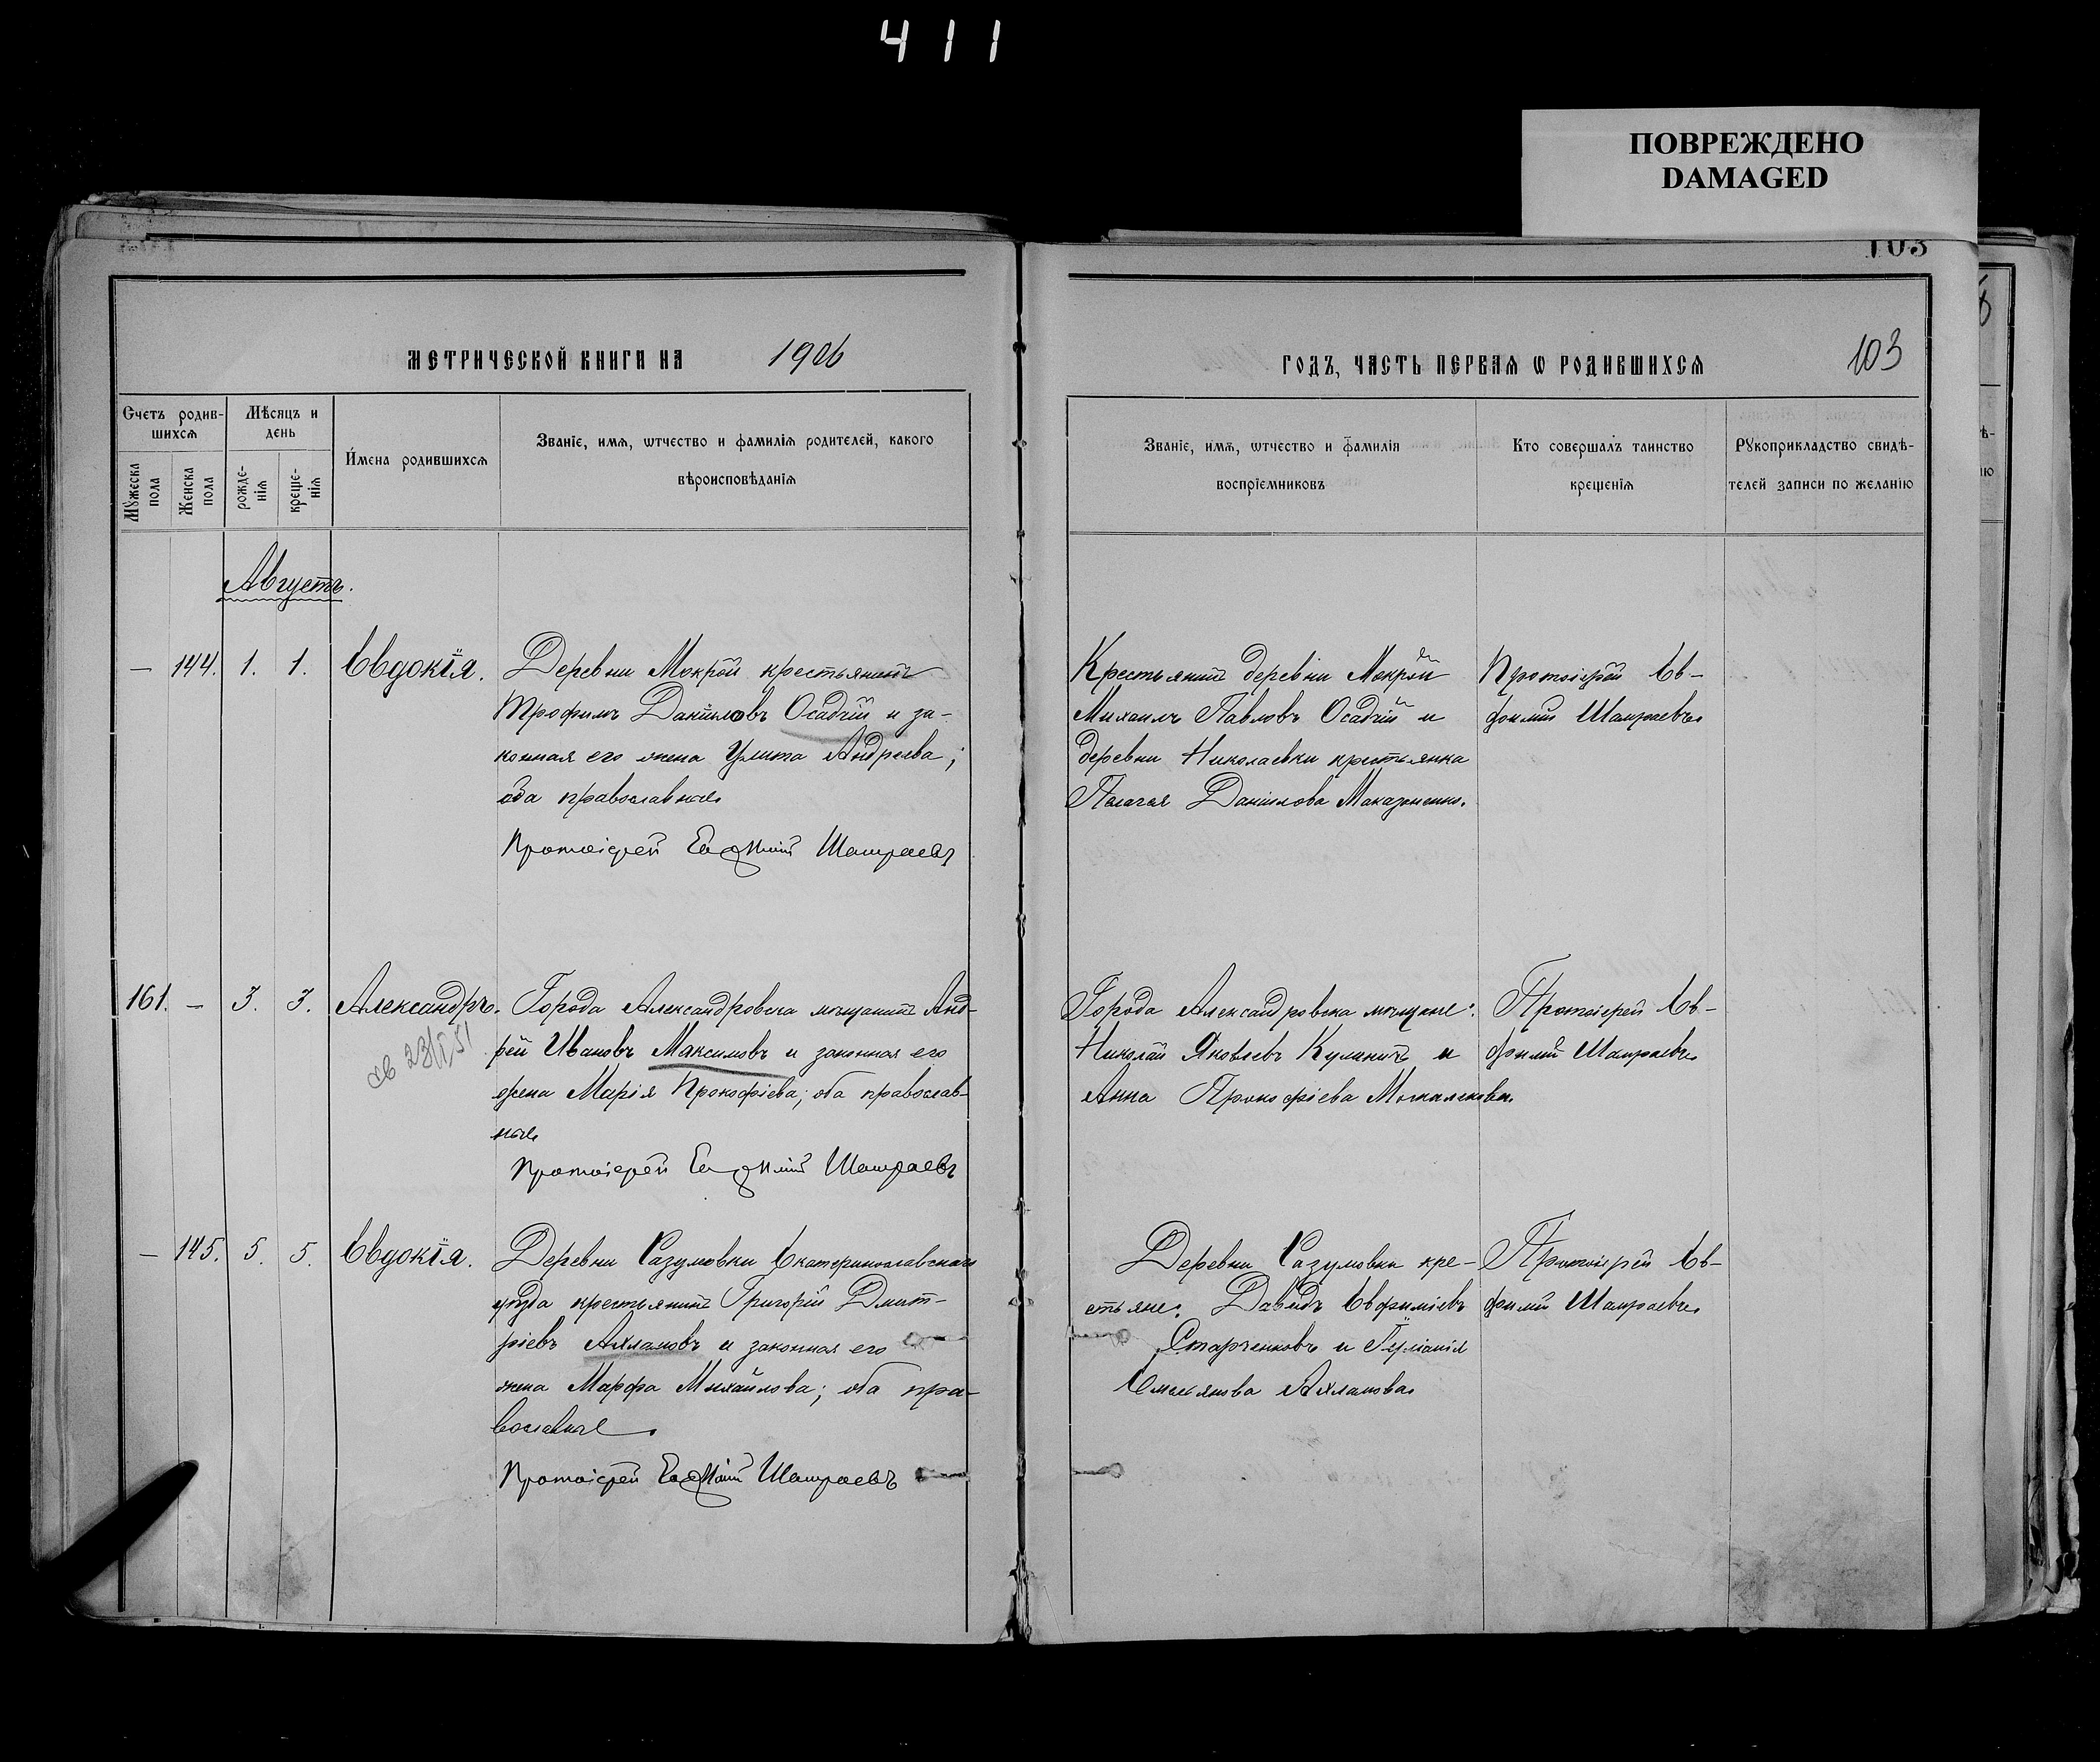 411
ПОВРЕЖДЕНО
DAMAGED
103
МЕТРИЧЕСКОЙ КНИГИ НА 1906
ГОДЪ, ЧАСТЬ ПЕРВАЯ Ѡ РОДИВШИХСЯ 103
Счетъ родив-
шихсѧ
Мꙋжеска пола
Женска пола
Мѣсяцъ и
день
рожде-
нїѧ
креще-
нїѧ
Имена родившихсѧ
Званїе, имѧ, ѿчество и фамилїѧ родителей, какого
вѣроисповѣданїѧ
Званїе, имѧ, ѿчество и фамилїѧ
воспрїемниковъ
Кто совершалъ таинство
крещенїѧ
Рꙋкоприкладство свидѣ-
телей записи по желанїю
Августъ.
— 144. 1. 1. Евдокія.
Деревни Мокрой крестьянинъ
Трофимъ Даніиловъ Осадчій и за-
конная его жена Улита Андреева;
оба православные
Протоіерей Евфимій Шамраевъ
Крестьянинъ деревни Мокрой
Михаилъ Павловъ Осадчій и
деревни Николаевки крестьянка
Пелагея Даніилова
Протоіерей Ев-
фимій Шамраевъ
161. — 3. 3. Александръ.
св 23/V,51
Города Александровска мѣщанинъ Анд-
рей Ивановъ Максимовъ и законная его
жена Марія Прокофіева; оба православ-
ные
Протоіерей Евфимій Шамраевъ
Города Александровска мѣщане:
Николай Яковлевъ и
Анна Прокофіева
Протоіерей Ев-
фимій Шамраевъ
— 145. 5. 5. Евдокія.
Деревни Разумовки Екатеринославскаго
уѣзда крестьянинъ Григорій Дмит-
ріевъ Ахламовъ и законная его
жена Марфа Михайлова; оба пра-
вославные.
Протоіерей Евфимій Шамраевъ
Деревни Разумовки кре-
стьяне: Давидъ Евфиміевъ
Старченковъ и
Емельянова Ахламова
Протоіерей Ев-
фимій Шамраевъ